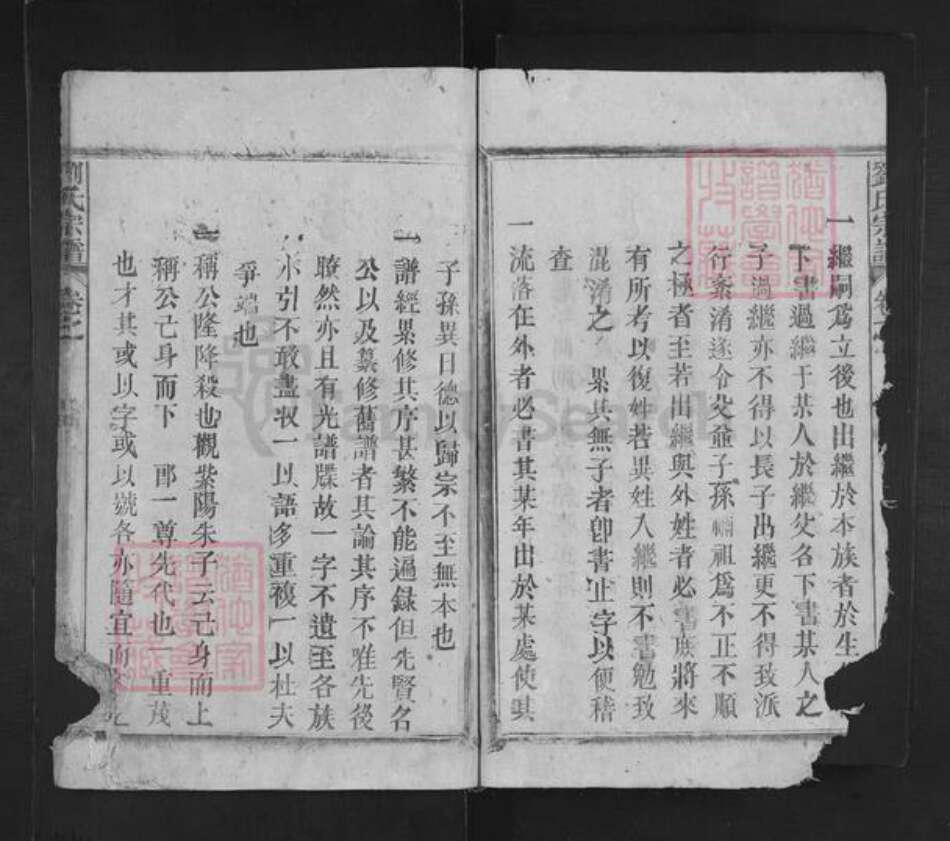 劉氏宗譜
一繼嗣爲立後也出繼於本族者於生
下書過繼于某人於繼父名下書某人之
子過繼亦不得以長子出繼更不得致派
行紊淆遂令父爺子孫禰祖爲不正不順
之極者至若出繼與外姓者必書庶將來
有所考以復姓若異姓入繼則不書勉致
混淆之 果其無子者卽書止字以便稽
查
一流落在外者必書其某年出於某處使其
子孫異日德以歸宗不至無本也
一譜經累修其序甚繁不能遍録但先賢名
公以及纂修舊譜者其論其序不唯先後
瞭然亦且有光譜牒故一字不遺至各族
小引不敢盡収一以語多重複一以杜夫
爭端也
一稱公隆降殺也觀紫陽朱子云己身而上
稱公己身而下 郎一尊先代也一重茂
也才其或以字或以號各亦隨宜而
劉氏宗譜 卷之
FamilySearch